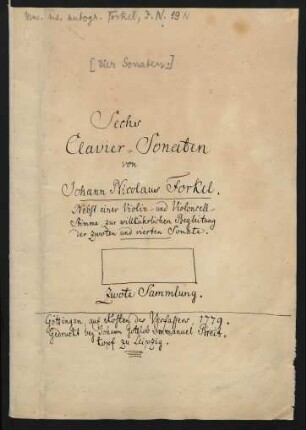 Mus. ms. autogr. Forkel, J. N. 19 N
[Vier Sonaten]
Sechs
Clavier-Sonaten
von
Johann Nicolaus Forkel.
Nebst einer Violin- und Violoncell-
Stimme zur willkührlichen Begleitung
der zwoten und vierten Sonate.
Zwote Sammlung.
Göttingen, auf Kosten des Verfassers, 1779.
Gedruckt bey Johann Gottlob Immanuel Breit-
kopf zu Leipzig.